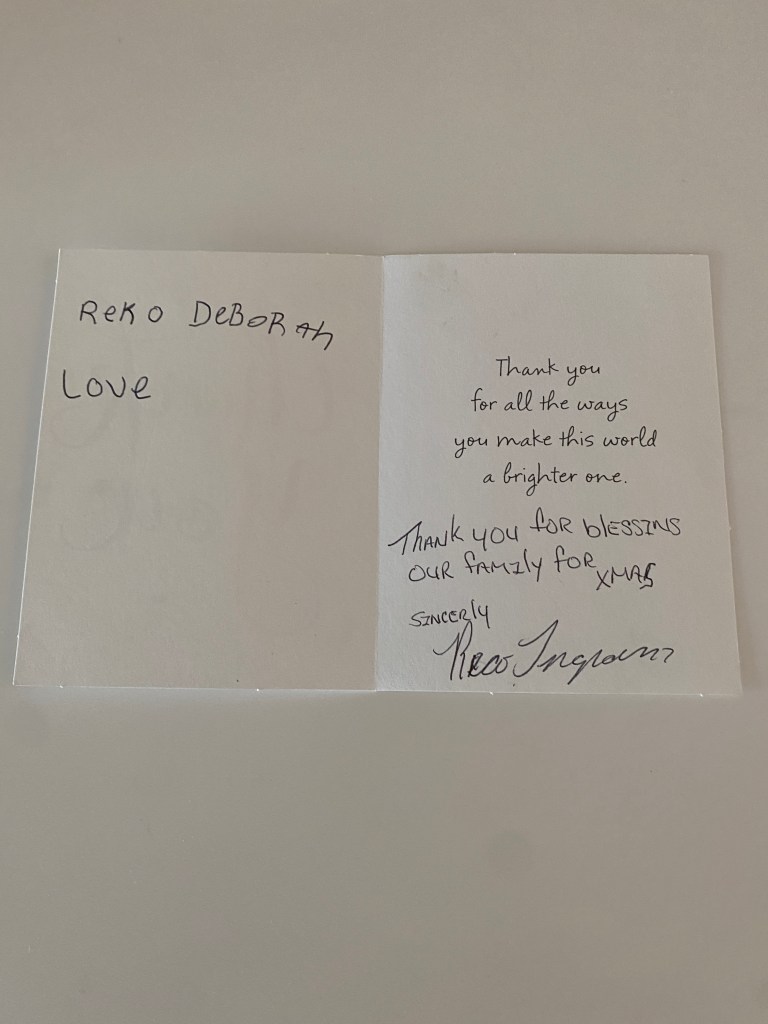 ReKo DeBoRah
Love
Thank you
for all the ways
you make this world
a brighter one.
THANK YOU FOR blESSINS
OUR FAMIly FOR XMAS
SINCERly
Reco Ingram